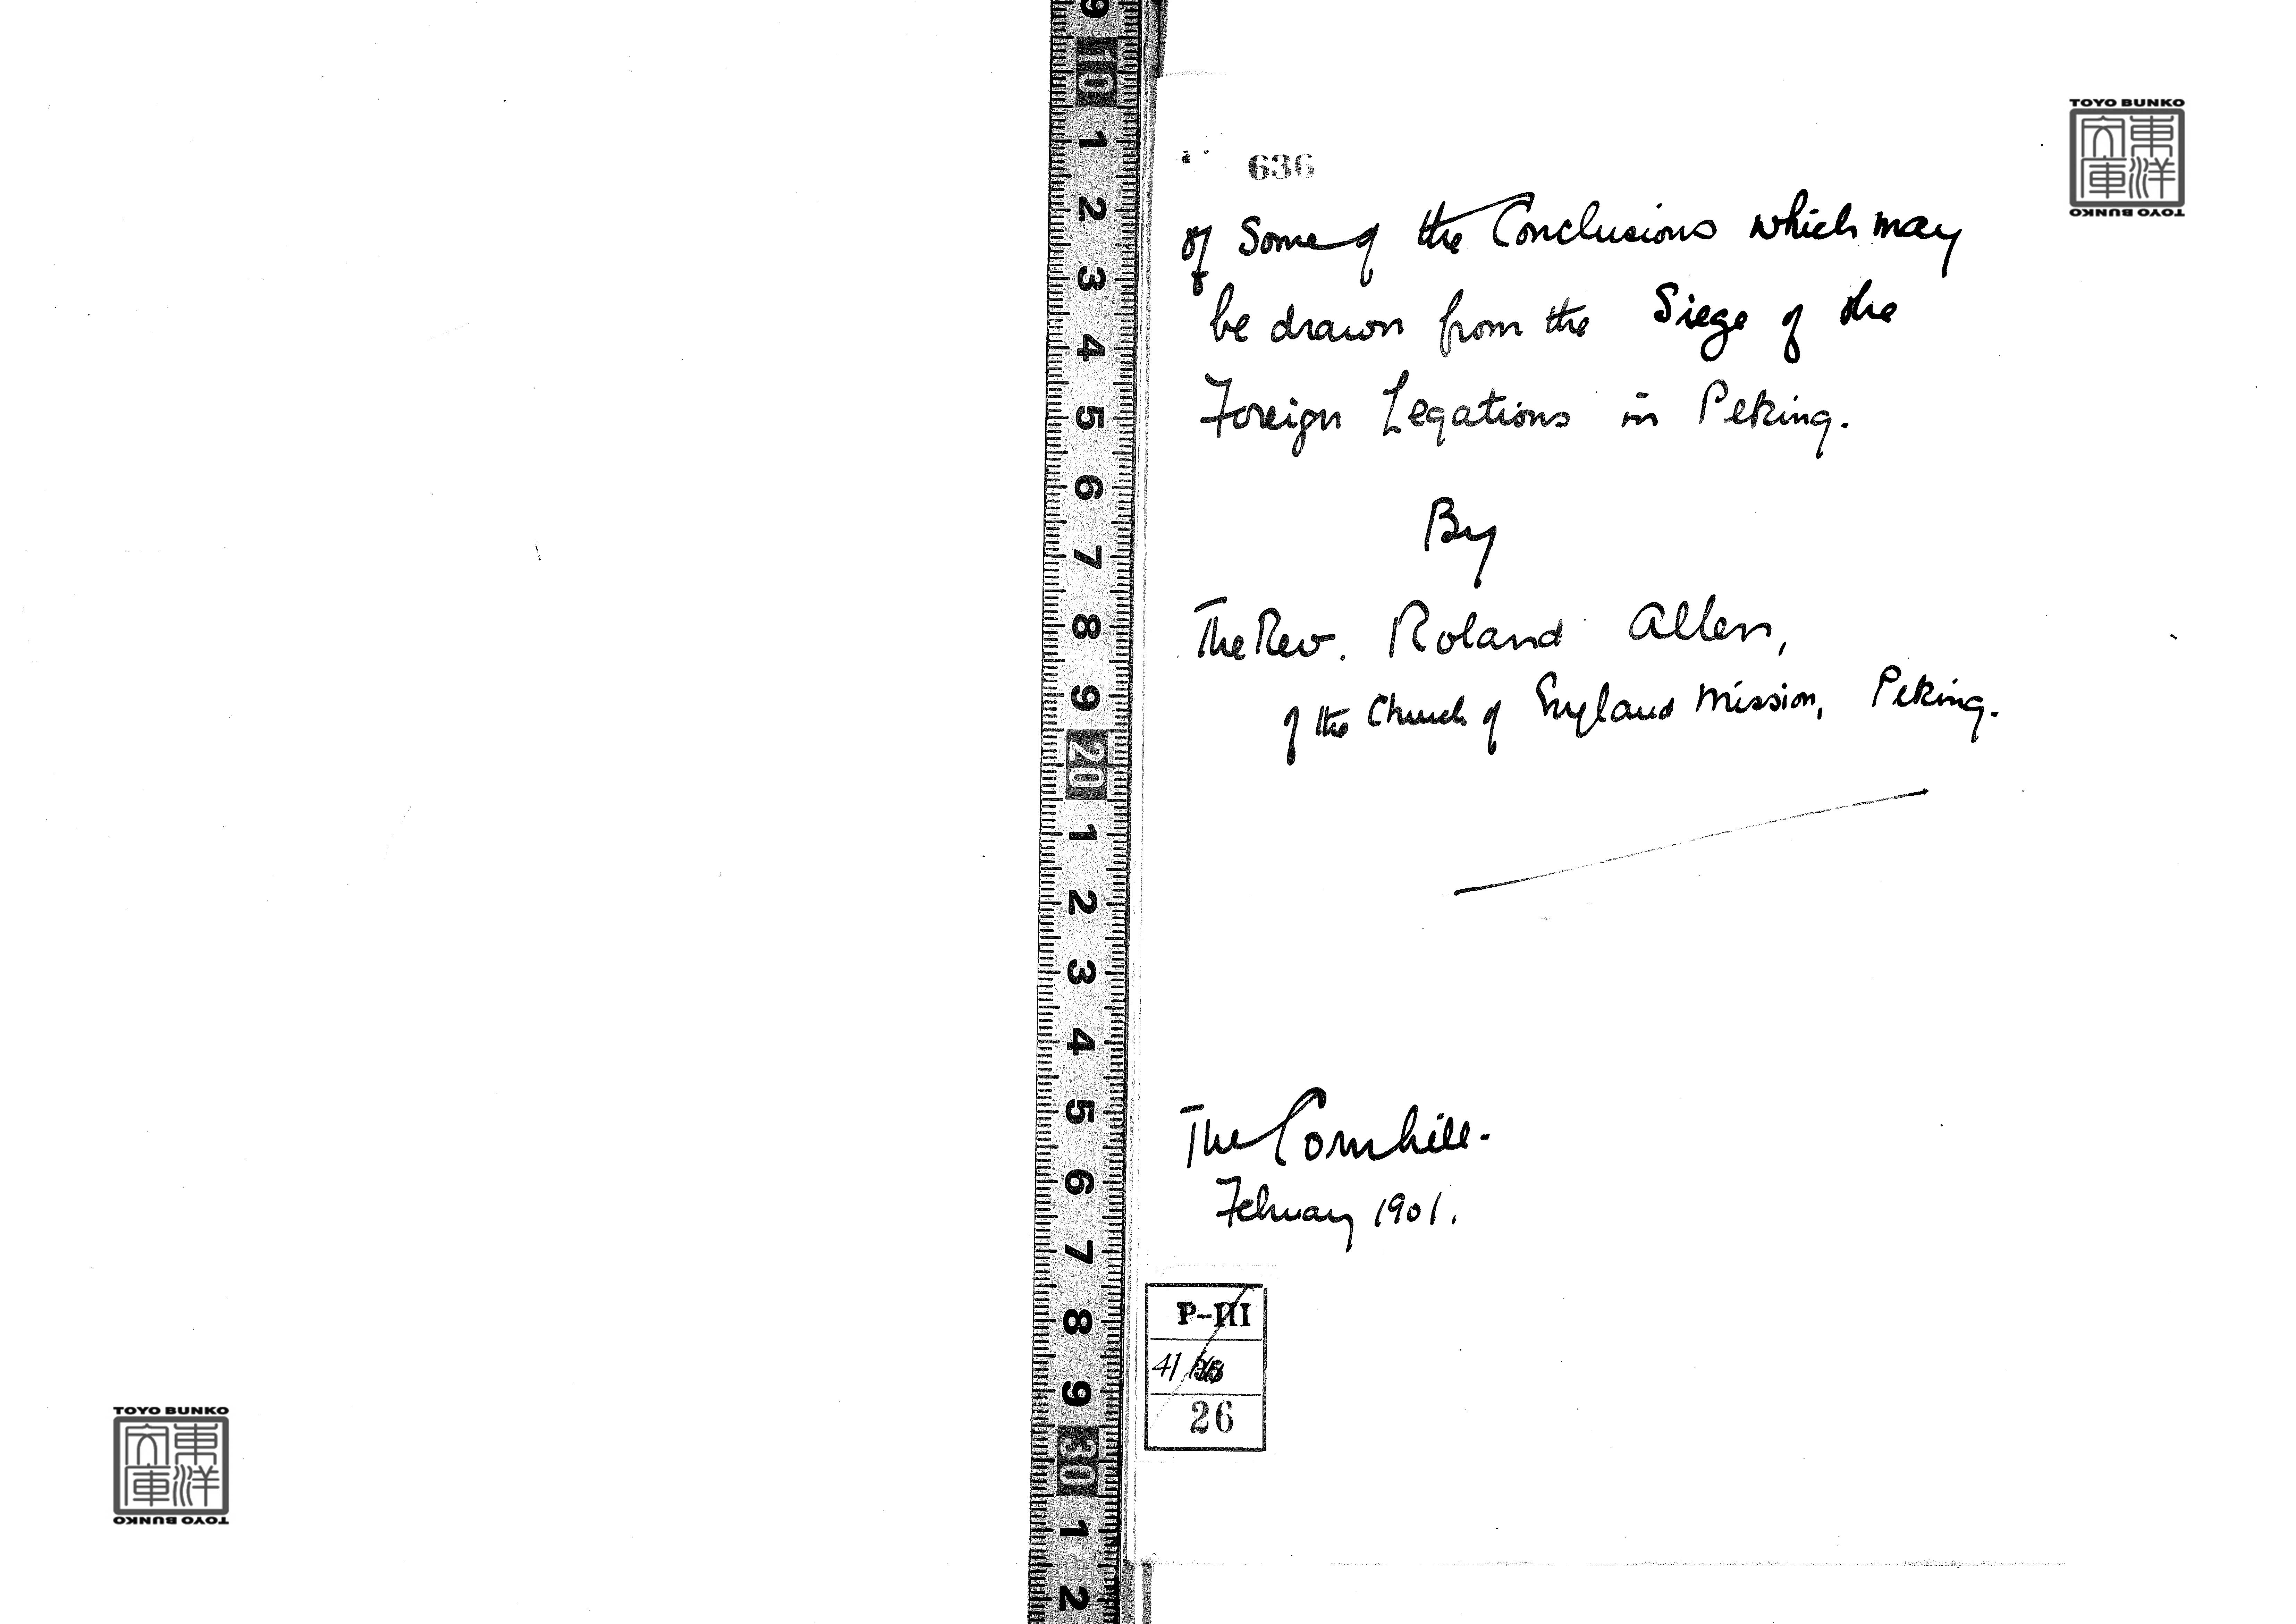 636
of Some of the Conclusions which may
be drawn from the Siege of the
Foreign Legations in Peking.
By
The Rev. Roland Allen,
of the Church of England Mission, Peking.
The Cornhill.
February 1901.
P-III
41
26
TOYO BUNKO
東洋
文庫
TOYO BUNKO
TOYO BUNKO
東洋
文庫
TOYO BUNKO
9
10
1
2
3
4
5
6
7
8
9
20
1
2
3
4
5
6
7
8
9
30
1
2